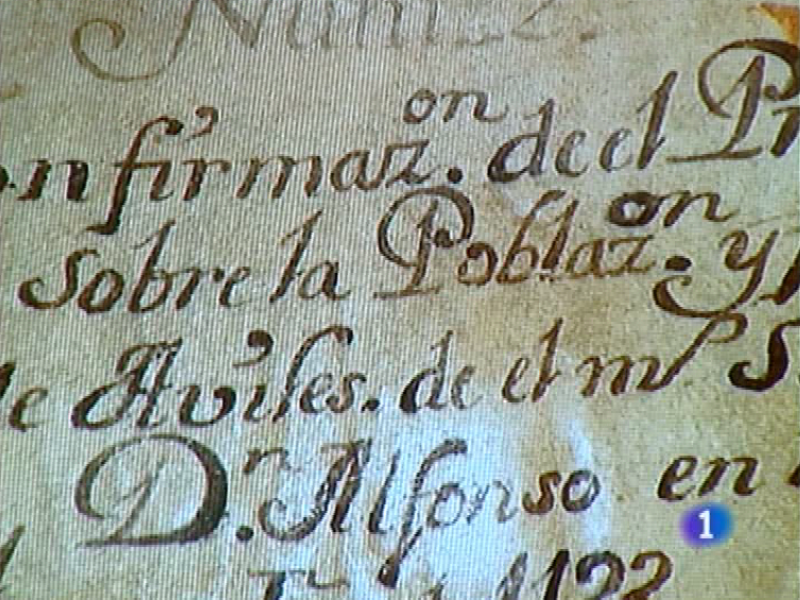 onfirmaz.on de el Pr
sobre la Poblaz.on y
de Aviles. de el m S
Dn. Alfonso en
1